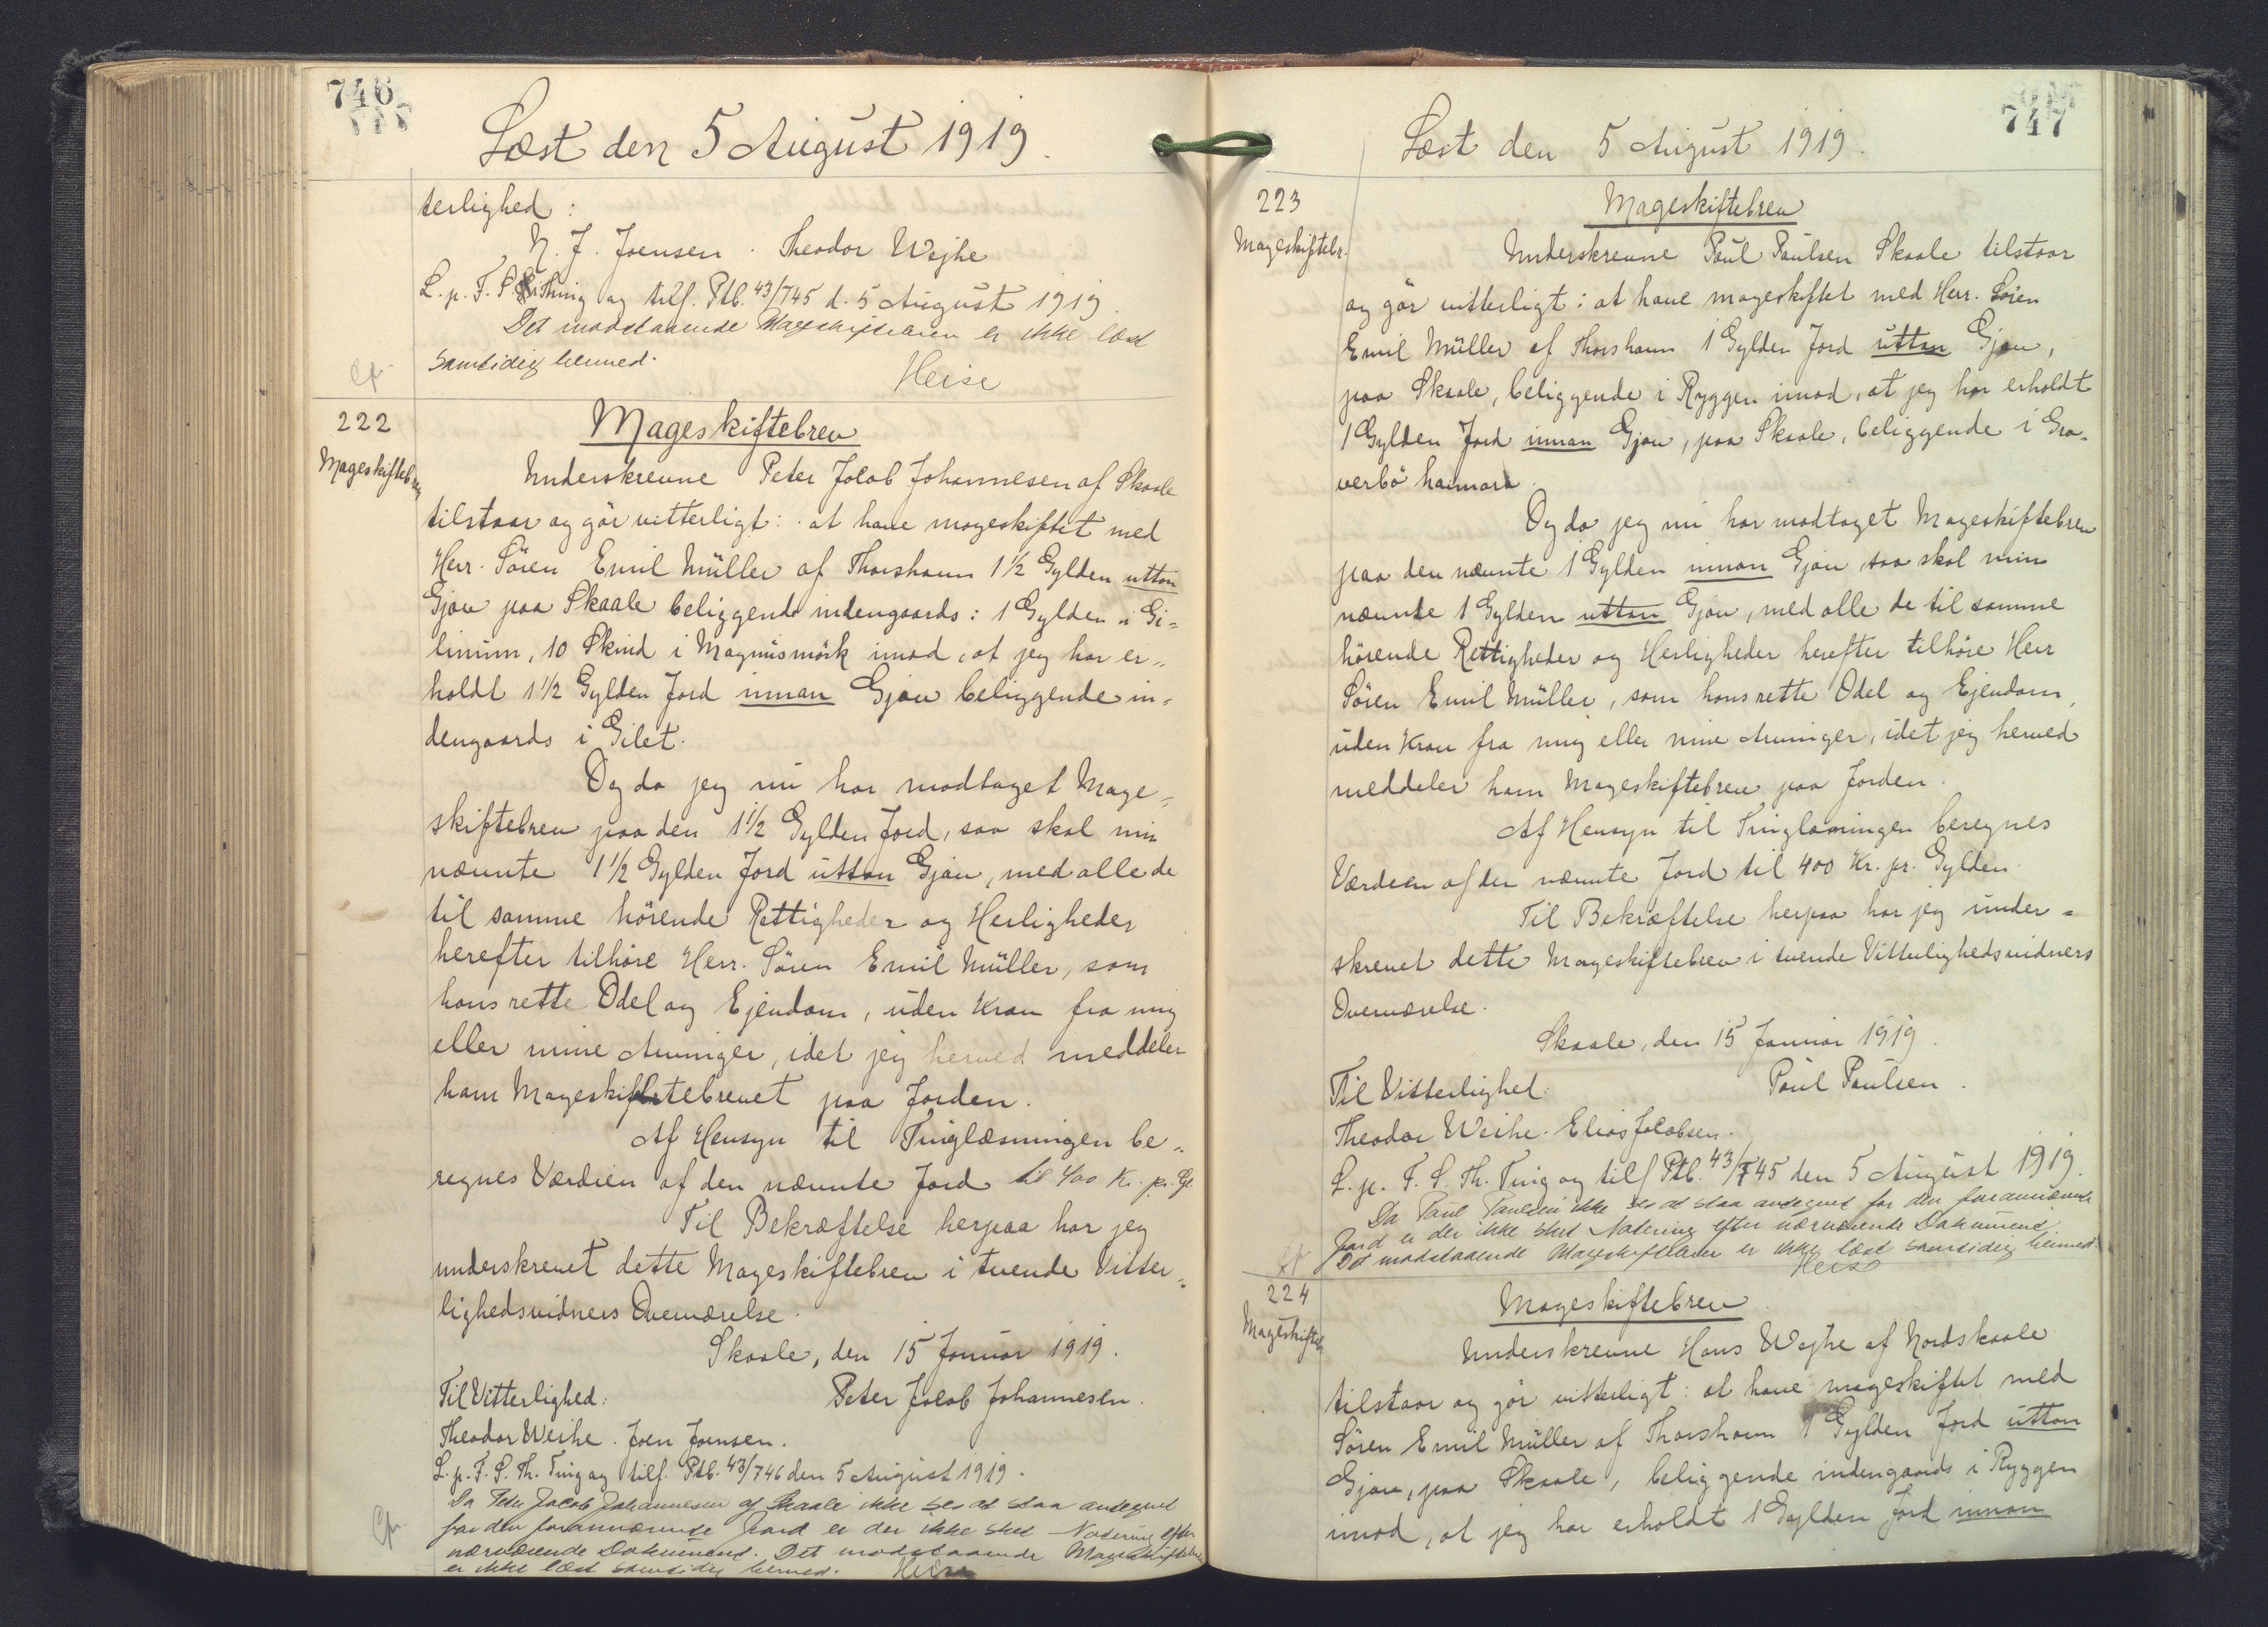 746
Læst den 5 August 1919.
terlighed:
N. J. Joensen. Theodor Wejhe
L. p. F. S. Thing og tilf. Ptb. 43/745 d. 5 August 1919.
Det modstaaende Mageskiftebrev er ikke læst
samtidig hermed.
Heise
Cfr.
222
Mageskiftebrev
Mageskiftebrev
Underskrevne Peter Jacob Johannesen af Skaale
tilstaar og gör vitterligt: at have mageskiftet med
Herr. Sören Emil Müller af Thorshavn 1 1/2 Gylden uttan
Gjov paa Skaale beliggende indengaards: 1 Gylden i Gi-
linum, 10 Skind i Magnusmörk imod, at jeg har er-
holdt 1 1/2 Gylden Jord innan Gjov beliggende in-
dengaards i Gilet.
Og da jeg nu har modtaget Mage-
skiftebrev paa den 1 1/2 Gylden Jord, saa skal min
nævnte 1 1/2 Gylden Jord uttan Gjov, med alle de
til samme hörende Rettigheder og Herligheder
herefter tilhöre Herr. Sören Emil Müller, som
hans rette Odel og Ejendom, uden Krav fra mig
eller mine Arvinger, idet jeg herved meddeler
ham Mageskiftebrevet paa Jorden.
Af Hensyn til Tinglæsningen be-
regnes Værdien af den nævnte Jord til 400 Kr. pr. Gl.
Til Bekræftelse herpaa har jeg
underskrevet dette Mageskiftebrev i tvende Vitter-
lighedsvidners Overværelse.
Skaale, den 15 Januar 1919.
Til Vitterlighed: Peter Jacob Johannesen.
Theodor Weihe. Joen Joensen.
L. p. F. S. Th. Ting og tilf. Ptb. 43/746 den 5 August 1919.
Da Peter Jacob Johannesen af Skaale ikke ses at staa antegnet
for den forannævnte Jord er der ikke sket Notering efter
nærværende Dokument. Det modstaaende Mageskiftebrev
er ikke læst samtidig hermed. Heise
Cfr.
747
Læst den 5 August 1919.
223
Mageskiftebr.
Mageskiftebrev
Underskrevne Paul Paulsen Skaale tilstaar
og gör vitterligt: at have mageskiftet med Herr. Sören
Emil Müller af Thorshavn 1 Gylden Jord uttan Gjov,
paa Skaale, beliggende i Ryggen imod, at jeg har erholdt
1 Gylden Jord innan Gjov, paa Skaale, beliggende i Gra-
verbö
Og da jeg nu har modtaget Mageskiftebrev
paa den nævnte 1 Gylden innan Gjov, saa skal min
nævnte 1 Gylden uttan Gjov, med alle de til samme
hörende Rettigheder og Herligheder herefter tilhöre Herr
Sören Emil Müller, som hans rette Odel og Ejendom,
uden Krav fra mig eller mine Arvinger, idet jeg herved
meddeler ham Mageskiftebrev paa Jorden.
Af Hensyn til Tinglæsningen beregnes
Værdien af den nævnte Jord til 400 Kr. pr. Gylden.
Til Bekræftelse herpaa har jeg under-
skrevet dette Mageskiftebrev i tvende Vitterlighedsvidners
Overværelse.
Skaale, den 15 Januar 1919.
Til Vitterlighed: Paul Paulsen.
Theodor Weihe. Elias Jacobsen.
L. p. F. S. Th. Ting og tilf Ptb. 43/745 den 5 August 1919.
Da Paul Paulsen ikke ses at staa antegnet for den forannævnte
Jord er der ikke sket Notering efter nærværende Dokument.
Det modstaaende Mageskiftebrev er ikke læst samtidig hermed.
Heise
Cfr
224
Mageskifteb
Mageskiftebrev
Underskrevne Hans Wejhe af Nordskaale
tilstaar og gör vitterligt: at have mageskiftet med
Sören Emil Müller af Thorshavn 1 Gylden Jord uttan
Gjov, paa Skaale, beliggende indengaards i Ryggen
imod, at jeg har erholdt 1 Gylden Jord innan